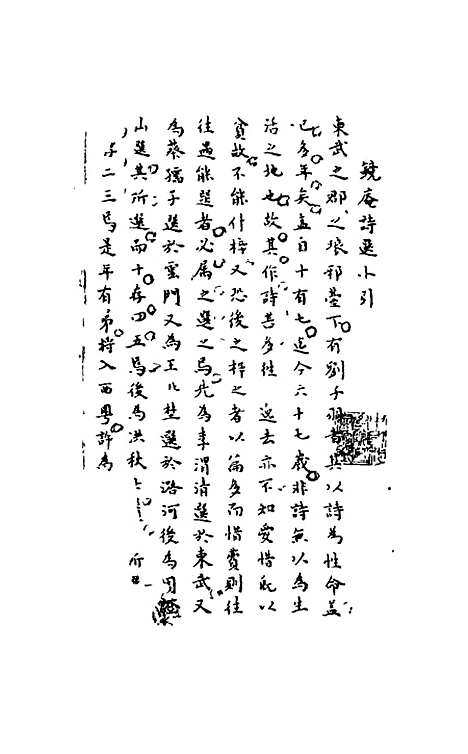 鏡庵詩選小引
東武之郡之琅邪臺下有劉子羽者其以詩為性命蓋
已多年矣蓋自十有七迄今六十七歲非詩無以為生
活之地也故其作詩苦多往 逸去亦不知愛惜既以
貧故不能付梓又恐後之梓之者以篇多而惜費則往
往遇能選者必属之選之焉先為李渭清選於東武又
為蔡孺子選於雲門又為王北埜選於潞河後為周
山選其所選而十存四五焉後為洪秋士 所
二三焉是年有弟将入西粤許為